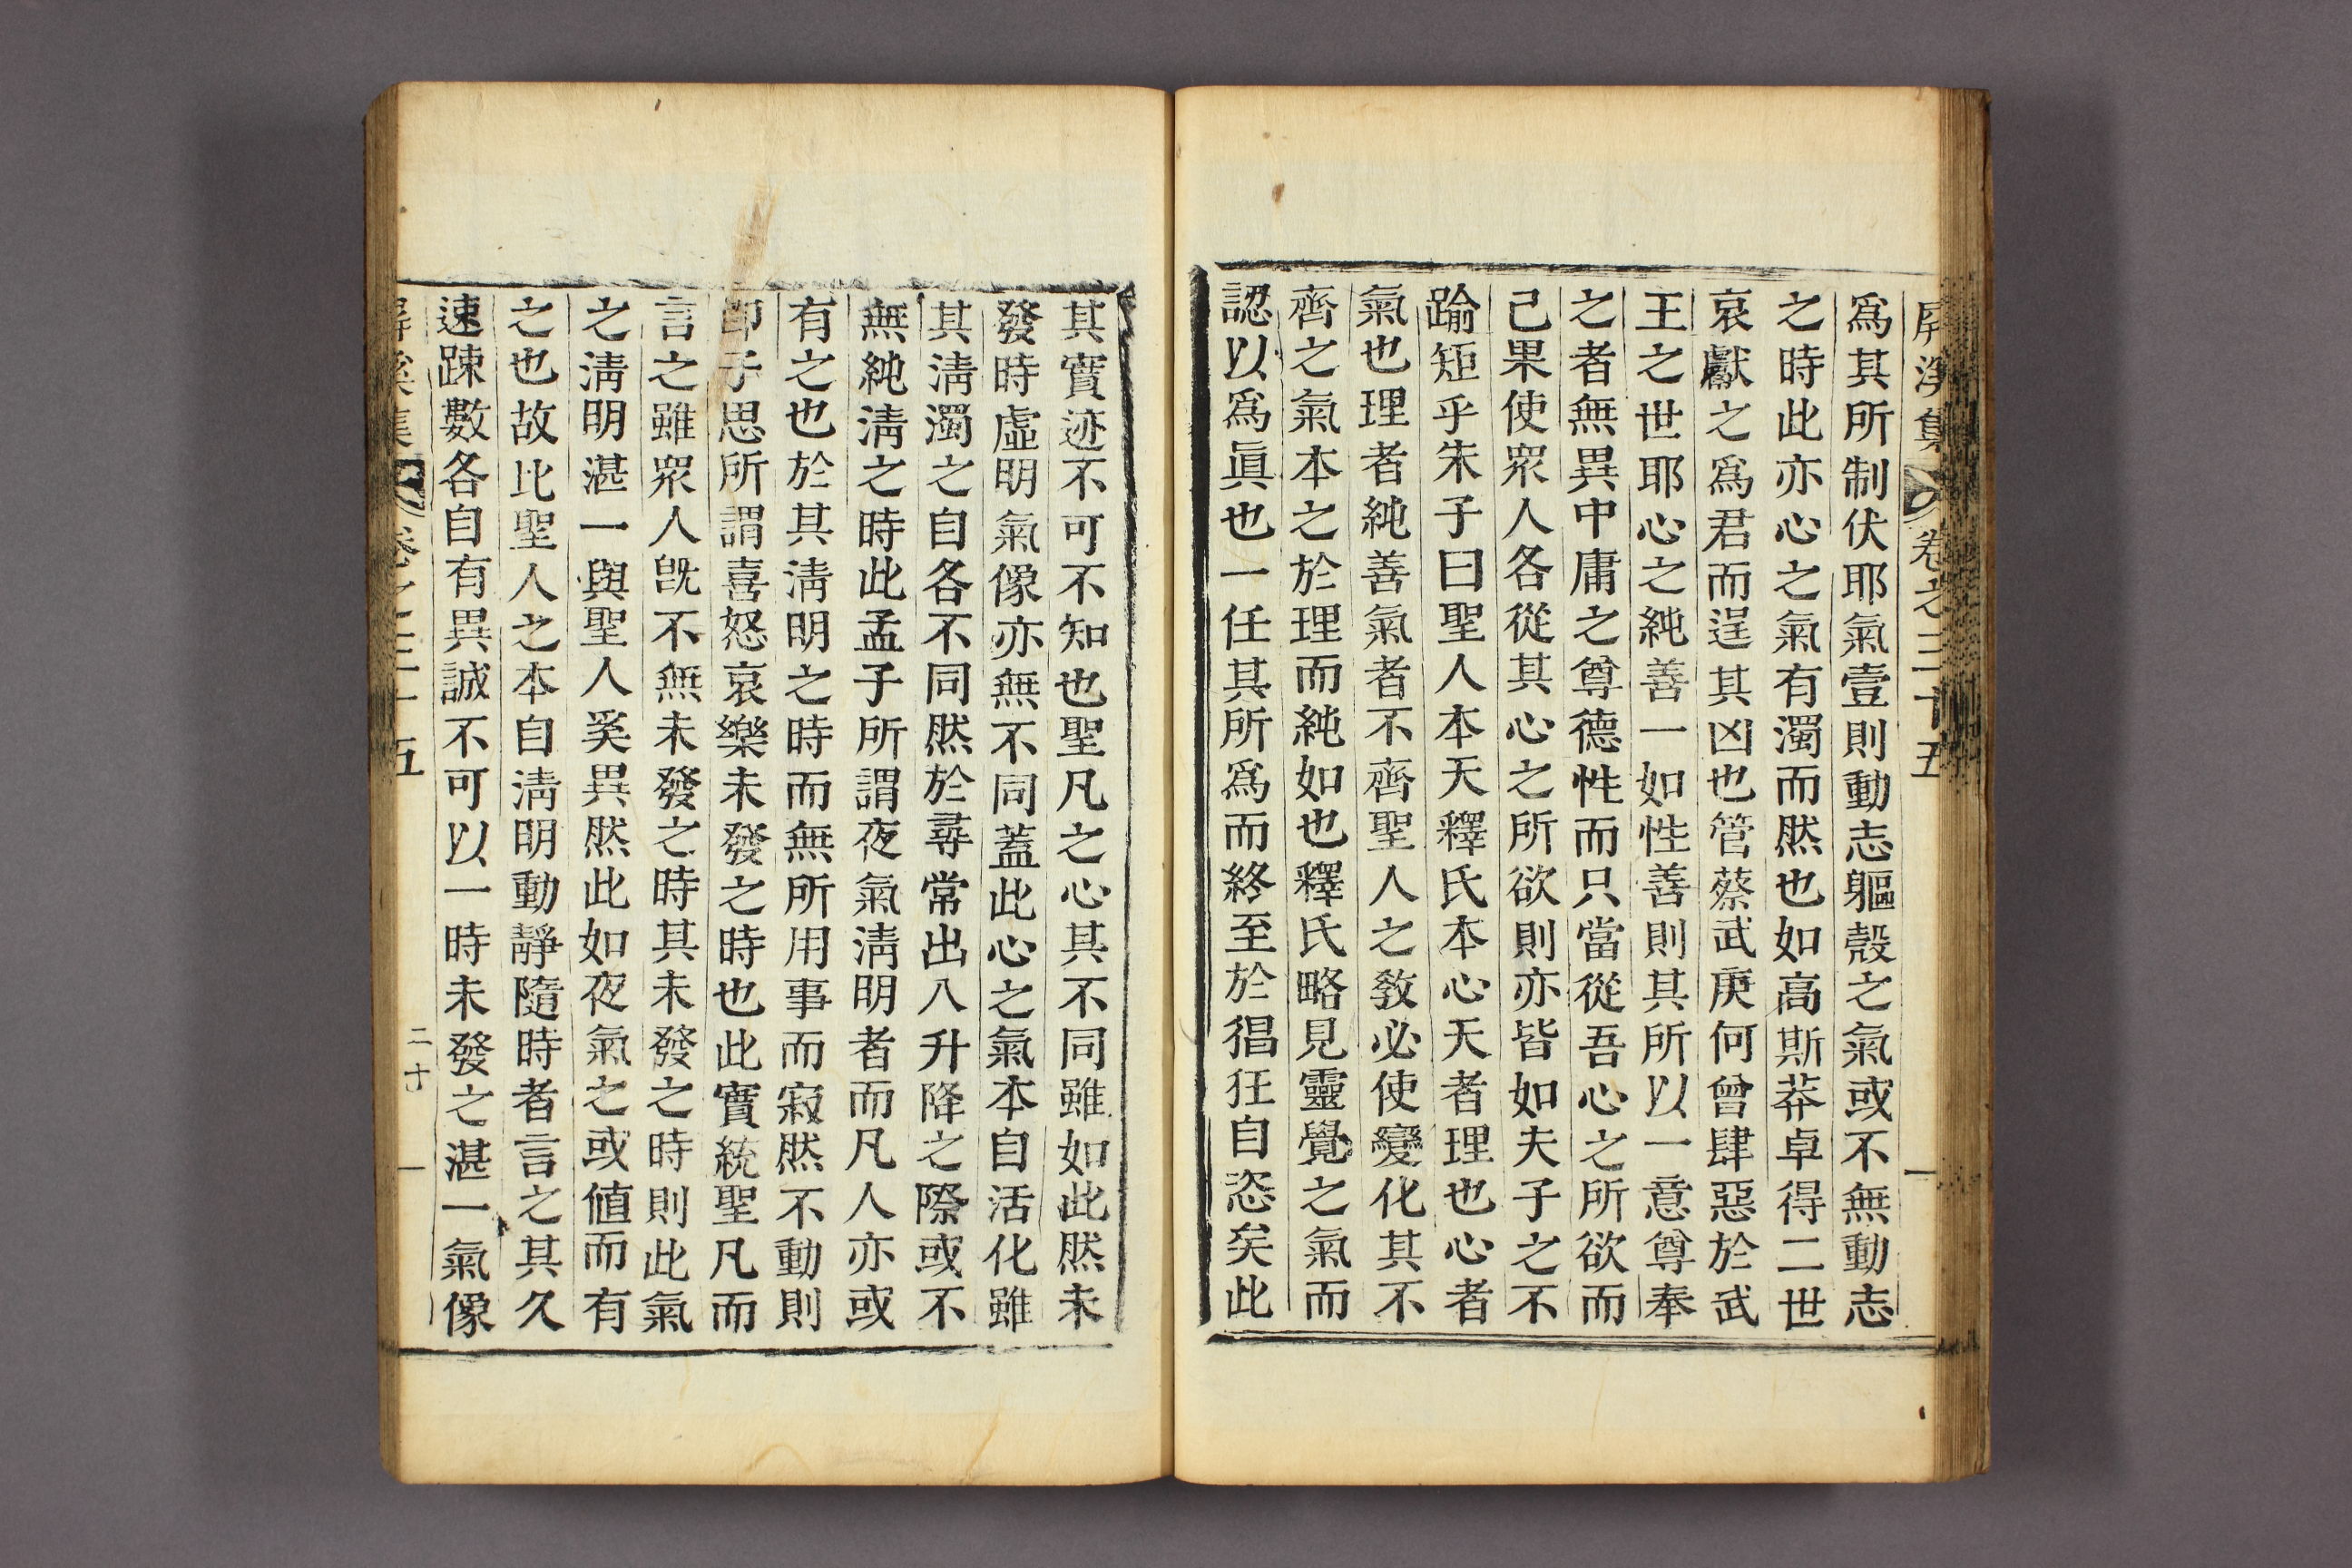 屛溪集 卷之三十五
爲其所制伏耶氣壹則動志軀殼之氣或不無動志
之時此亦心之氣有濁而然也如高斯莽卓得二世
哀獻之爲君而逞其凶也管蔡武庚何曾肆惡於武
王之世耶心之純善一如性善則其所以一意尊奉
之者無異中庸之尊德性而只當從吾心之所欲而
己果使衆人各從其心之所欲則亦皆如夫子之不
踰矩乎朱子曰聖人本天釋氏本心天者理也心者
氣也理者純善氣者不齊聖人之敎必使變化其不
齊之氣本之於理而純如也釋氏略見靈覺之氣而
認以爲眞也一任其所爲而終至於猖狂自恣矣此
其實迹不可不知也聖凡之心其不同雖如此然未
發時虛明氣像亦無不同蓋此心之氣本自活化雖
其淸濁之自各不同然於尋常出入升降之際或不
無純淸之時此孟子所謂夜氣淸明者而凡人亦或
有之也於其淸明之時而無所用事而寂然不動則
卽子思所謂喜怒哀樂未發之時也此實統聖凡而
言之雖衆人旣不無未發之時其未發之時則此氣
之淸明湛一與聖人奚異然此如夜氣之或値而有
之也故比聖人之本自淸明動靜隨時者言之其久
速踈數各自有異誠不可以一時未發之湛一氣像
屛溪集 卷之三十五 二十一